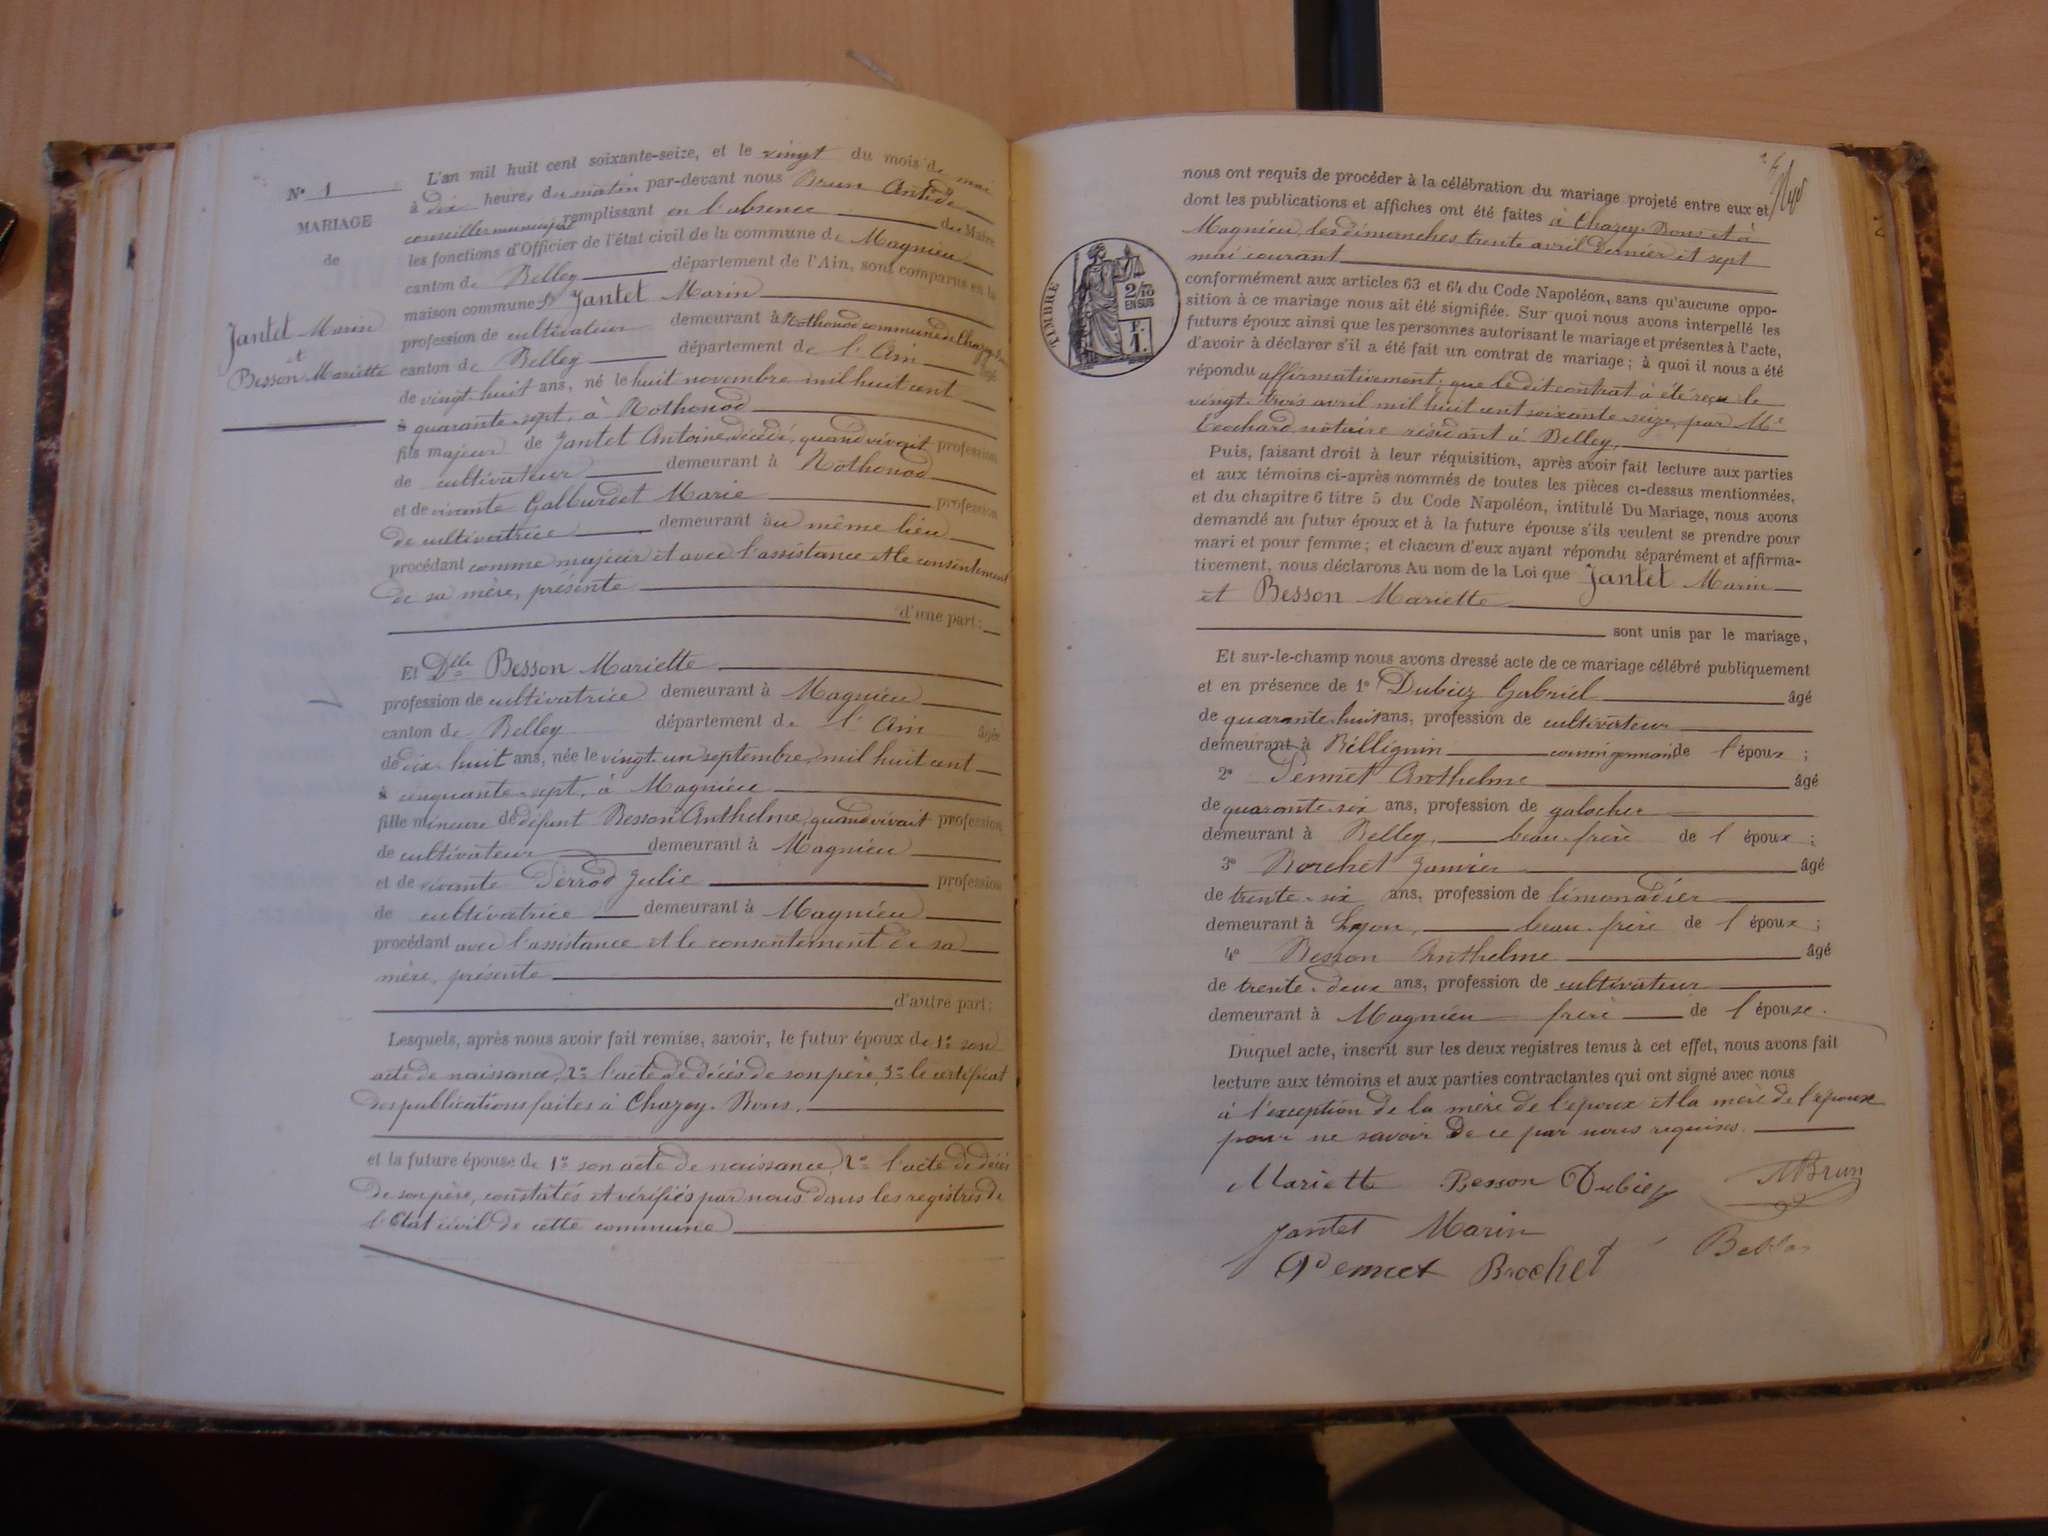 N° 1
MARIAGE
de
Jantet Marin
et
Besson Mariette
L'an mil huit cent soixante-seize, et le vingt du mois de mai
à dix heures du matin par-devant nous Brun
conseiller municipal remplissant en l'absence du Maire
les fonctions d'Officier de l'état civil de la commune de Magnieu
canton de Belley département de l'Ain, sont comparus en la
maison commune Sr Jantet Marin
profession de cultivateur demeurant à Rothonod commune de Chazey-Bons
canton de Belley département de l'Ain âgé
de vingt-huit ans, né le huit novembre mil huit cent
à quarante-sept, à Rothonod
fils majeur de Jantet Antoine décédé, quand vivait profession
de cultivateur demeurant à Rothonod
et de vivante Gallurdet Marie profession
de cultivatrice demeurant au même lieu
procédant comme majeur et avec l'assistance et le consentement
de sa mère, présente
d'une part;
Et Dlle Besson Mariette
profession de cultivatrice demeurant à Magnieu
canton de Belley département de l'Ain âgée
de dix-huit ans, née le vingt-un septembre mil huit cent
à cinquante-sept, à Magnieu
fille mineure de défunt Besson Anthelme, quand vivait profession
de cultivateur demeurant à Magnieu
et de vivante Perrod Julie profession
de cultivatrice demeurant à Magnieu
procédant avec l'assistance et le consentement de sa
mère, présente
d'autre part;
Lesquels, après nous avoir fait remise, savoir, le futur époux de 1° son
acte de naissance, 2° l'acte de décès de son père, 3° le certificat
des publications faites à Chazey-Bons,
et la future épouse de 1° son acte de naissance, 2° l'acte de décès
de son père, constatés et vérifiés par nous dans les registres de
l'Etat civil de cette commune
nous ont requis de procéder à la célébration du mariage projeté entre eux et
dont les publications et affiches ont été faites à Chazey-Bons et à
Magnieu, les dimanches trente avril dernier et sept
mai courant
TIMBRE
2/10
EN SUS
F.
1.
conformément aux articles 63 et 64 du Code Napoléon, sans qu'aucune oppo-
sition à ce mariage nous ait été signifiée. Sur quoi nous avons interpellé les
futurs époux ainsi que les personnes autorisant le mariage et présentes à l'acte,
d'avoir à déclarer s'il a été fait un contrat de mariage; à quoi il nous a été
répondu affirmativement; que le dit contrat à été reçu le
vingt-trois avril mil huit cent soixante-seize, par Me
notaire résidant à Belley,
Puis, faisant droit à leur réquisition, après avoir fait lecture aux parties
et aux témoins ci-après nommés de toutes les pièces ci-dessus mentionnées,
et du chapitre 6 titre 5 du Code Napoléon, intitulé Du Mariage, nous avons
demandé au futur époux et à la future épouse s'ils veulent se prendre pour
mari et pour femme; et chacun d'eux ayant répondu séparément et affirma-
tivement, nous déclarons Au nom de la Loi que Jantet Marin
et Besson Mariette
sont unis par le mariage,
Et sur-le-champ nous avons dressé acte de ce mariage célébré publiquement
et en présence de 1° Dubiez Gabriel âgé
de quarante-huit ans, profession de cultivateur
demeurant à Béllignin cousin germain de l'époux;
2° Pennet Anthelme âgé
de quarante-six ans, profession de galocher
demeurant à Belley, beau-frère de l'époux;
3° Borchet Janvier âgé
de trente-six ans, profession de limonadier
demeurant à Lyon, beau-frère de l'époux;
4° Besson Anthelme âgé
de trente-deux ans, profession de cultivateur
demeurant à Magnieu frère de l'épouse.
Duquel acte, inscrit sur les deux registres tenus à cet effet, nous avons fait
lecture aux témoins et aux parties contractantes qui ont signé avec nous
à l'exception de la mère de l'époux et la mère de l'épouse
pour ne savoir de ce par nous requises.
Mariette Besson Dubiez Brun
Jantet Marin Besson
Pennet Brochet